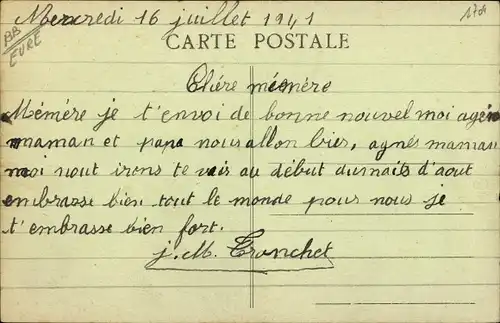 Mercredi 16 juillet 1941
BB
EURE
CARTE POSTALE
Chére mémére
Mémére je t'envoi de bonne nouvel moi agén
maman et papa nous allon bien, agnés maman
moi nout irons te voir au début du mois d'aout
embrasse bien tout le monde pour nous je
t'embrasse bien fort.
j. M. Tronchet